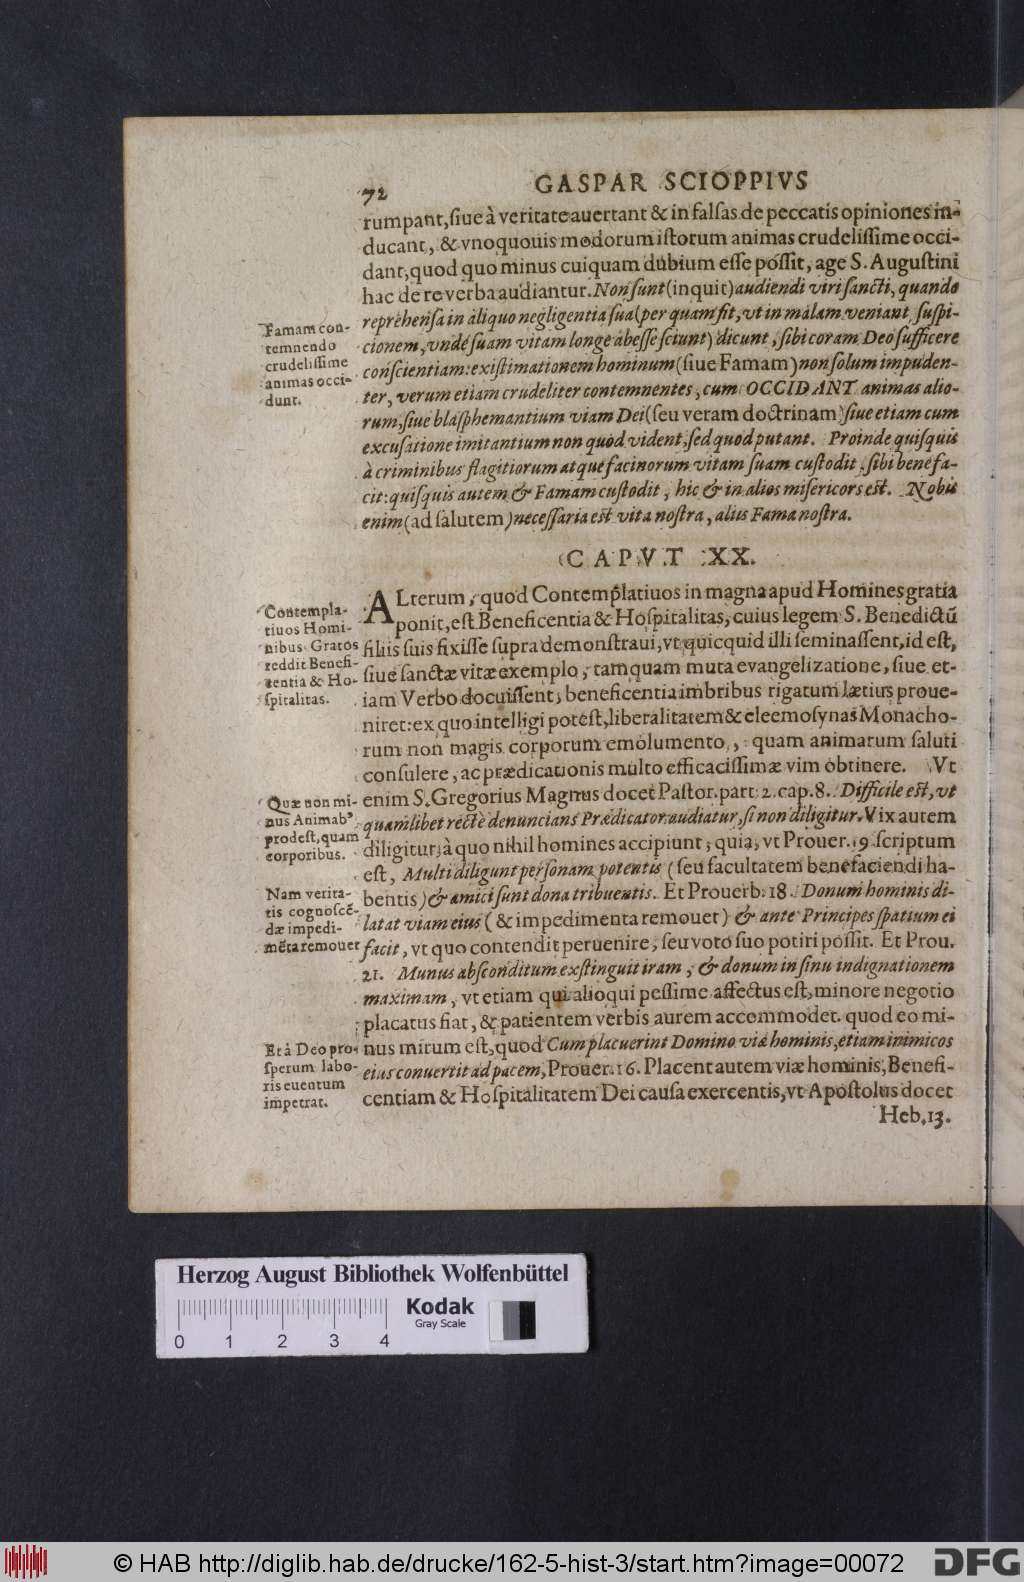 72 GASPAR SCIOPPIVS
rumpant, ſiue à veritate auertant & in falſas de peccatis opiniones in-
ducant, & vnoquouis modorum iſtorum animas crudeliſſime occi-
dant, quod quo minus cuiquam dubium eſſe poſſit, age S. Auguſtini
hac de re verba audiantur. Non ſunt (inquit) audiendi viri ſancti, quando
reprehenſa in aliquo negligentia ſua (per quam fit, vt in malam veniant ſuſpi-
cionem, vnde ſuam vitam longe abeſſe ſciunt) dicunt, ſibi coram Deo ſufficere
conſcientiam: exiſtimationem hominum (ſiue Famam) non ſolum impuden-
ter, verum etiam crudeliter contemnentes, cum OCCIDANT animas alio-
rum, ſiue blaſphemantium viam Dei (ſeu veram doctrinam) ſiue etiam cum
excuſatione imitantium non quod vident, ſed quod putant. Proinde quiſquis
à criminibus flagitiorum atque facinorum vitam ſuam cuſtodit, ſibi bene fa-
cit: quiſquis autem & Famam cuſtodit, hic & in alios miſericors eſt. Nobis
enim (ad ſalutem) neceſſaria eſt vita noſtra, aliis Fama noſtra.
Famam con-
temnendo
crudeliſſime
animas occi-
dunt.
CAPVT XX.
ALterum, quod Contemplatiuos in magna apud Homines gratia
ponit, eſt Beneficentia & Hoſpitalitas, cuius legem S. Benedictũ
filiis ſuis fixiſſe ſupra demonſtraui, vt quicquid illi ſeminaſſent, id eſt,
ſiue ſanctæ vitæ exemplo, tamquam muta evangelizatione, ſiue et-
iam Verbo docuiſſent, beneficentia imbribus rigatum lætius proue-
niret: ex quo intelligi poteſt, liberalitatem & eleemoſynas Monacho-
rum non magis corporum emolumento, quam animarum ſaluti
conſulere, ac prædicationis multo efficaciſſimæ vim obtinere. Vt
enim S. Gregorius Magnus docet Paſtor. part. 2. cap. 8. Difficile eſt, vt
quamlibet rectè denuncians Prædicator audiatur, ſi non diligitur. Vix autem
diligitur, à quo nihil homines accipiunt, quia, vt Prouer. 19 ſcriptum
eſt, Multi diligunt perſonam potentis (ſeu facultatem benefaciendi ha-
bentis) & amici ſunt dona tribuentis. Et Prouerb. 18. Donum hominis di-
latat viam eius (& impedimenta remouet) & ante Principes ſpatium ei
facit, vt quo contendit peruenire, ſeu voto ſuo potiri poſſit. Et Prou.
21. Munus abſconditum exſtinguit iram, & donum in ſinu indignationem
maximam, vt etiam qui alioqui peſſime affectus eſt, minore negotio
placatus fiat, & patientem verbis aurem accommodet. quod eo mi-
nus mirum eſt, quod Cum placuerint Domino viæ hominis, etiam inimicos
eius conuertit ad pacem, Prouer. 16. Placent autem viæ hominis, Benefi-
centiam & Hoſpitalitatem Dei cauſa exercentis, vt Apoſtolus docet
Heb. 13.
Contempla-
tiuos Homi-
nibus Gratos
reddit Benefi-
centia & Ho-
ſpitalitas.
Quæ non mi-
nus Animab⁹
prodeſt, quam
corporibus.
Nam verita-
tis cognoſcẽ-
dæ impedi-
mẽta remouet
Et à Deo pro-
ſperum labo-
ris euentum
impetrat.
Herzog August Bibliothek Wolfenbüttel
0 1 2 3 4
Kodak
Gray Scale
© HAB http://diglib.hab.de/drucke/162-5-hist-3/start.htm?image=00072
DFG